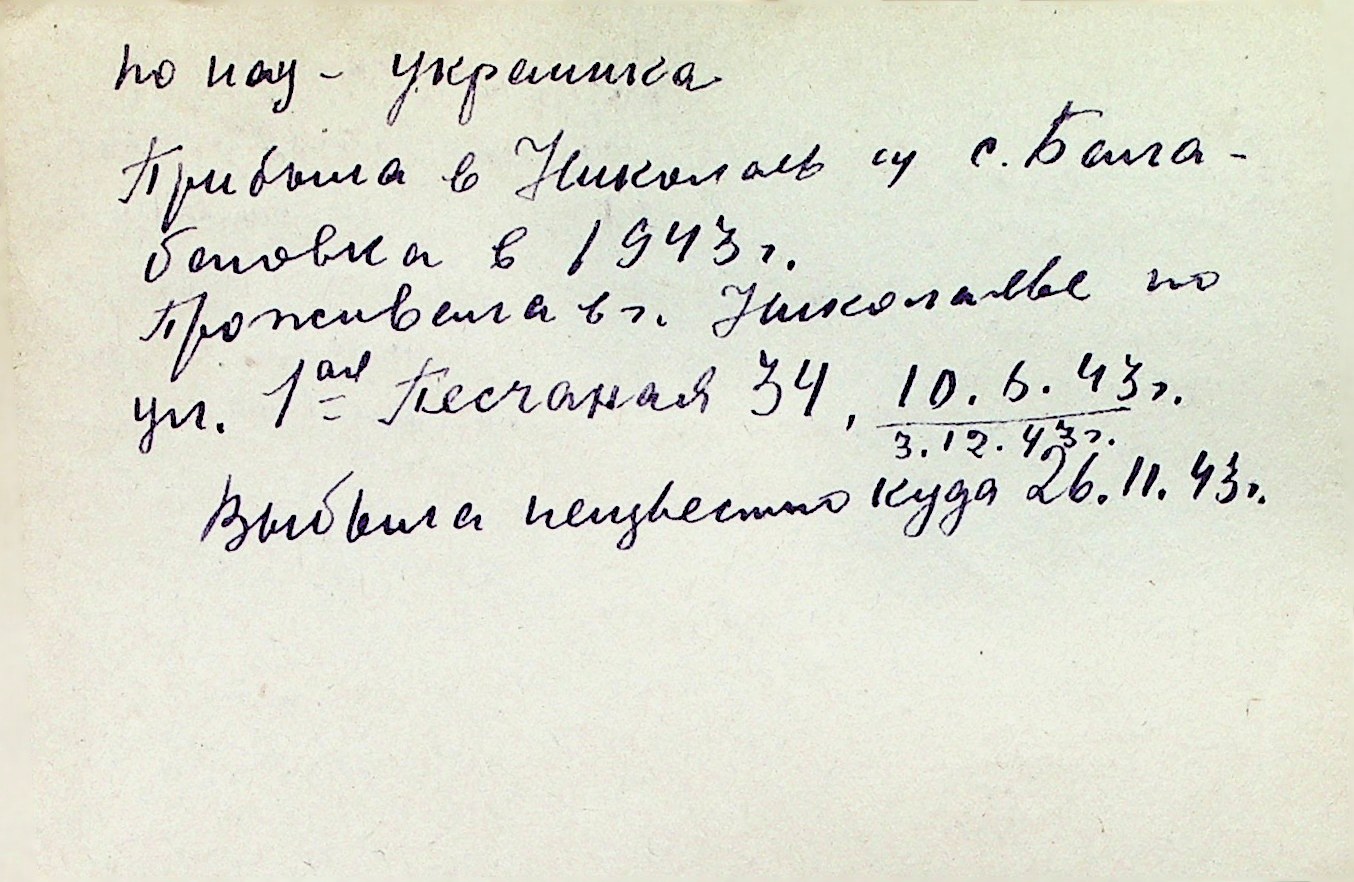 по нац - украинка
Прибыла в Николаев из с. Бала-
бановка в 1943 г.
Проживала в г. Николаеве по
ул. 1ая Песчаная 34, 10.6.43 г.
3.12.43 г.
Выбыла неизвестно куда 26.11.43 г.